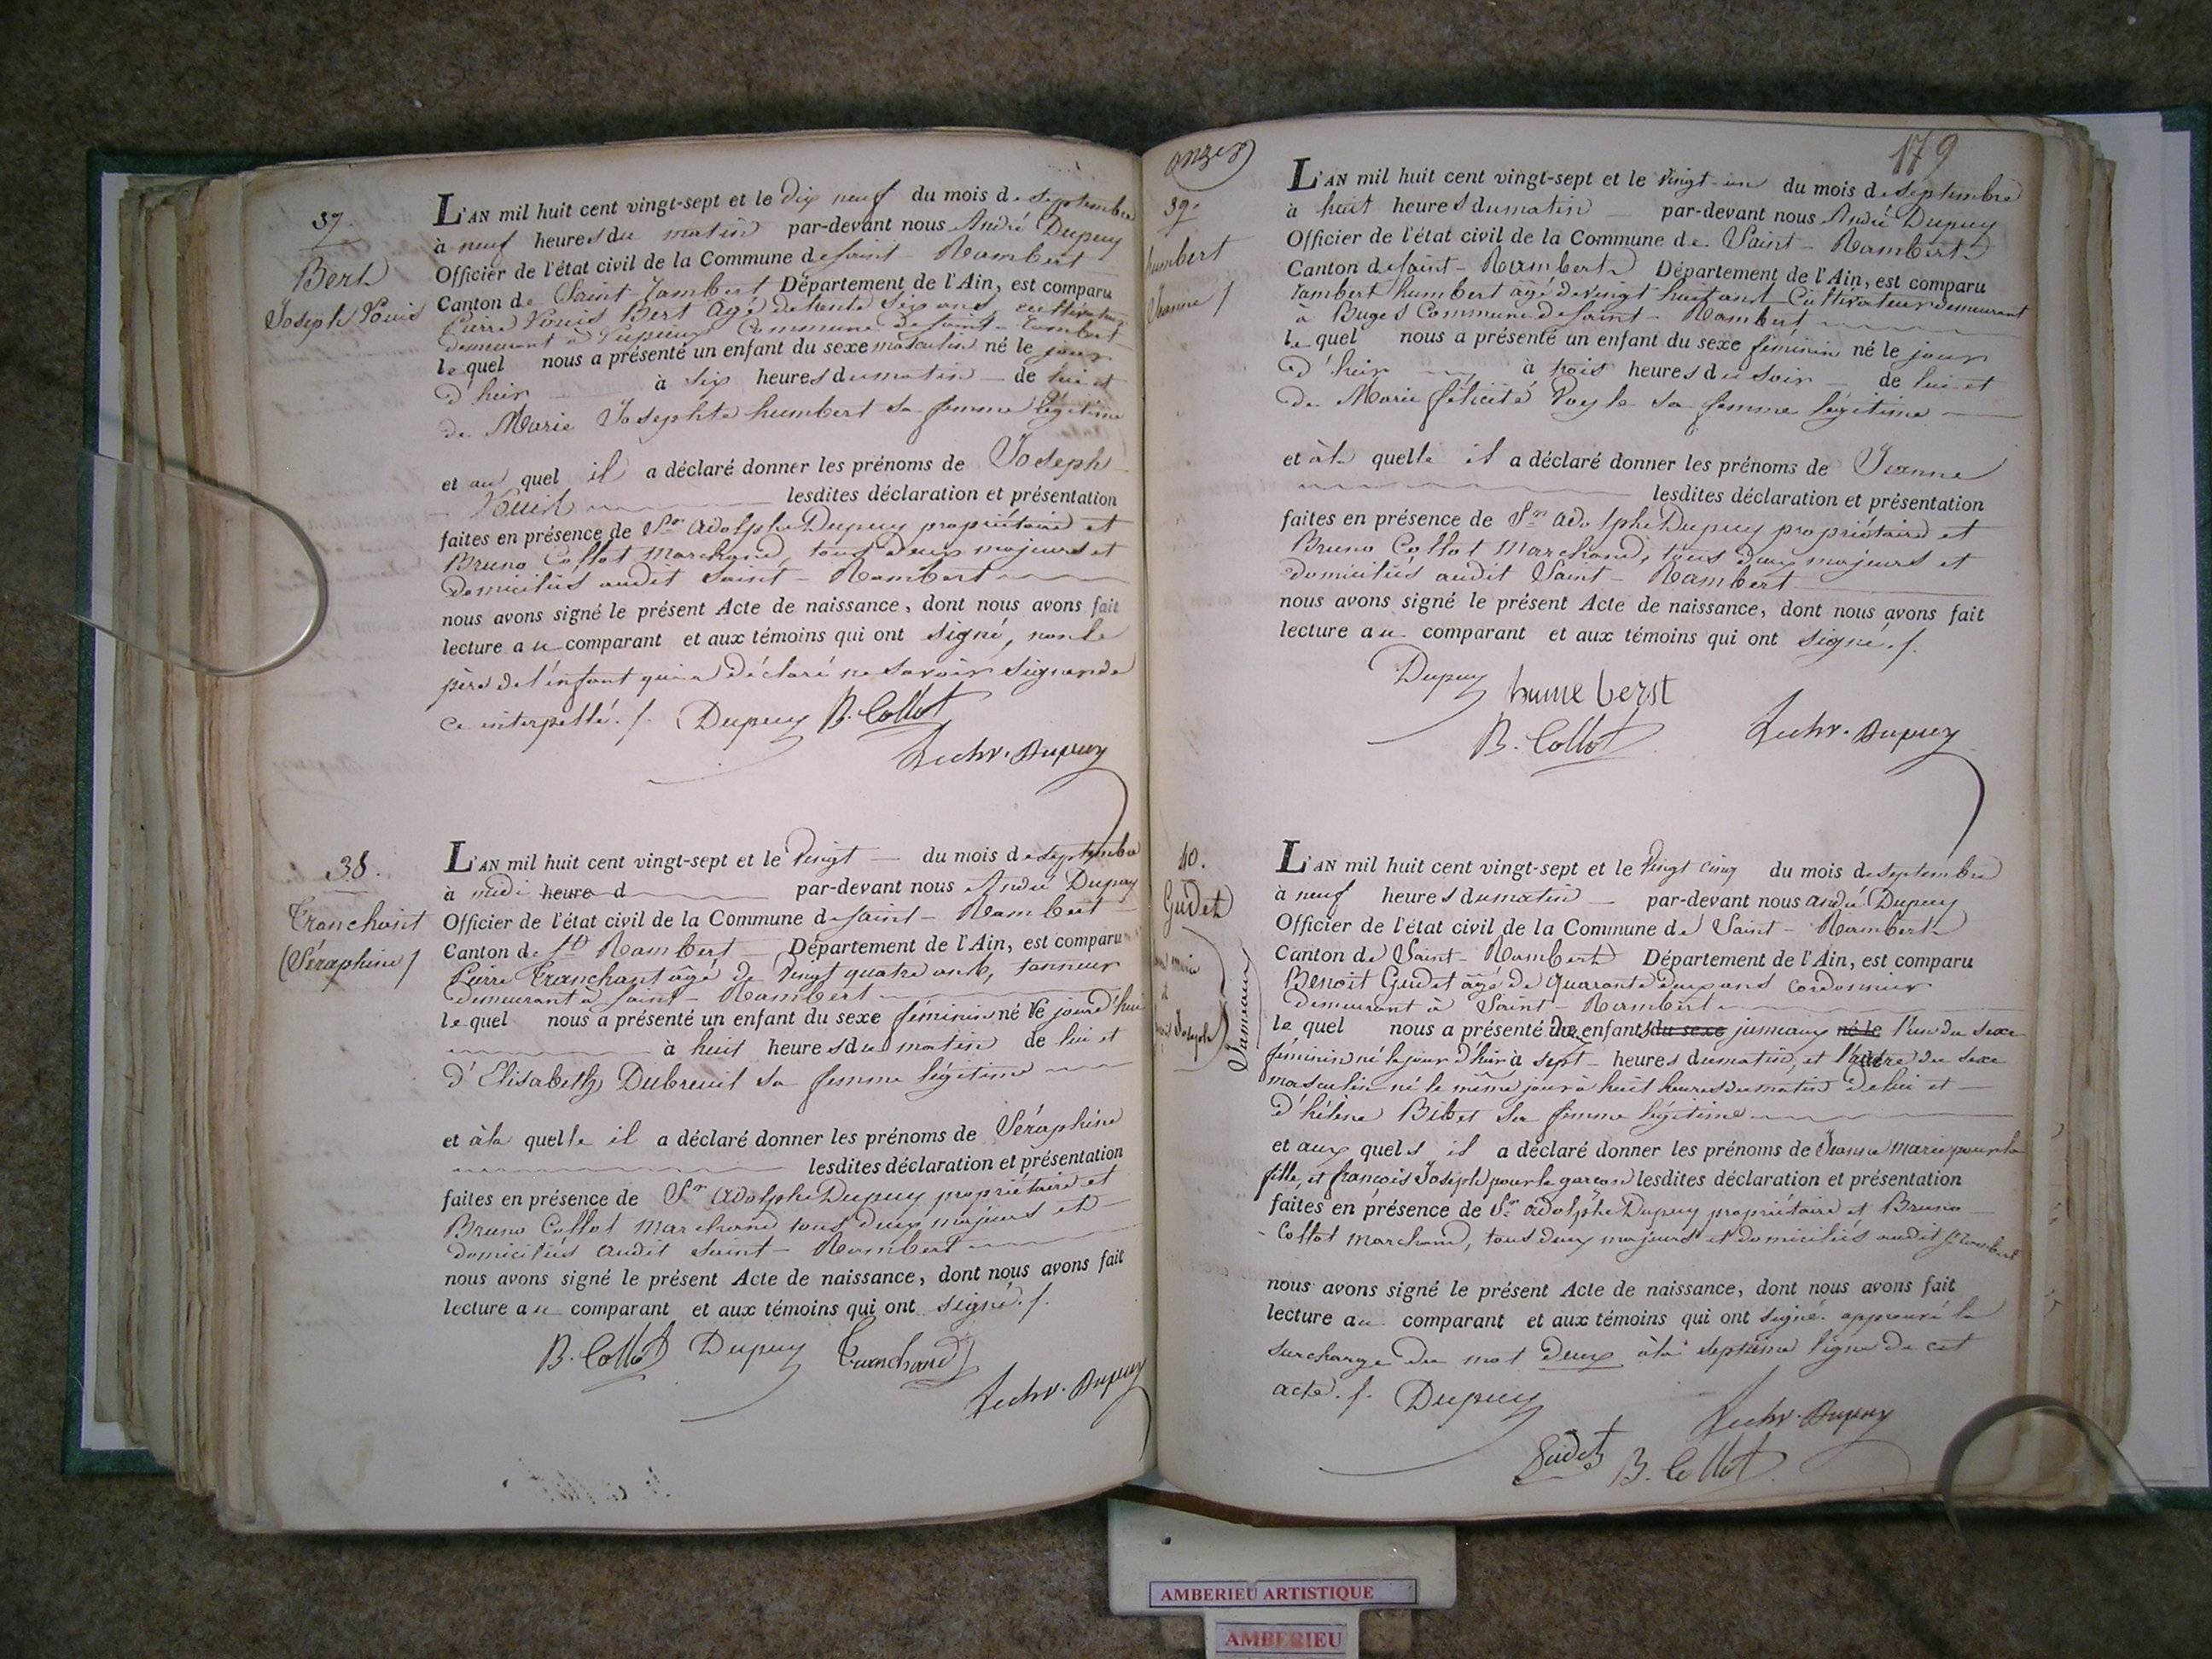 37.
Bert
Joseph Louis
L'AN mil huit cent vingt-sept et le dix neuf du mois de septembre
à neuf heures du matin par-devant nous André Dupuy
Officier de l'état civil de la Commune de saint-Rambert
Canton de Saint-Rambert Département de l'Ain, est comparu
Pierre Louis Bert âgé de trente six ans, cultivateur
demeurant à Commune de saint-rambert
lequel nous a présenté un enfant du sexe masculin né le jour
d'hier à six heures du matin de lui et
de Marie Josephte humbert sa femme légitime
et au quel il a déclaré donner les prénoms de Joseph
Louis lesdites déclaration et présentation
faites en présence de Sr. adolphe Dupuy propriétaire et
Bruno Collot marchand, tous deux majeurs et
domiciliés audit Saint-Rambert
nous avons signé le présent Acte de naissance, dont nous avons fait
lecture au comparant et aux témoins qui ont signé, non le
père de l'enfant qui a déclaré ne savoir signer de
ce interpellé./. Dupuy B. Collot
Dupuy
38.
Tranchant
(Séraphine)
L'AN mil huit cent vingt-sept et le vingt du mois de septembre
à midi heure d par-devant nous André Dupuy
Officier de l'état civil de la Commune de saint-Rambert
Canton de St Rambert Département de l'Ain, est comparu
Pierre Tranchant âgé de vingt quatre ans, tanneur
demeurant à saint-Rambert
lequel nous a présenté un enfant du sexe féminin né le jour d'hui
à huit heures du matin de lui et
d'Elisabeth Dubreuil sa femme légitime
et à la quelle il a déclaré donner les prénoms de Séraphine
lesdites déclaration et présentation
faites en présence de Sr adolphe Dupuy propriétaire et
Bruno Collot marchand tous deux majeurs et
domiciliés audit saint-Rambert
nous avons signé le présent Acte de naissance, dont nous avons fait
lecture au comparant et aux témoins qui ont signé./.
B. Collot Dupuy Tranchand
Dupuy
onze
179
39.
humbert
Jeanne
L'AN mil huit cent vingt-sept et le vingt-un du mois de septembre
à huit heures du matin par-devant nous André Dupuy
Officier de l'état civil de la Commune de Saint-Rambert
Canton de saint-Rambert Département de l'Ain, est comparu
rambert humbert âgé de vingt huit ans Cultivateur demeurant
à Buges Commune de saint-Rambert
lequel nous a présenté un enfant du sexe féminin né le jour
d'hier à trois heures du soir de lui et
de Marie félicité sa femme légitime
et à la quelle il a déclaré donner les prénoms de Jeanne
lesdites déclaration et présentation
faites en présence de Sr. adolphe Dupuy propriétaire et
Bruno Collot marchand, tous deux majeurs et
domiciliés audit Saint-Rambert
nous avons signé le présent Acte de naissance, dont nous avons fait
lecture au comparant et aux témoins qui ont signé./.
Dupuy
B. Collot Dupuy
40.
Gudet
Jumeaux
L'AN mil huit cent vingt-sept et le vingt cinq du mois de septembre
à neuf heures du matin par-devant nous andré Dupuy
Officier de l'état civil de la Commune de Saint-Rambert
Canton de Saint-Rambert Département de l'Ain, est comparu
Benoit Gudet âgé de quarante deux ans cordonnier
demeurant à Saint-Rambert
lequel nous a présenté deux enfants du sexe jumeaux né le l'un du sexe
féminin né le jour d'hier à sept heures du matin, et l'autre du sexe
masculin né le même jour à huit heures du matin de lui et
d'hélène Bibet sa femme légitime
et aux quels il a déclaré donner les prénoms de Jeanne marie pour la
fille, et françois Joseph pour le garçon lesdites déclaration et présentation
faites en présence de Sr. adolphe Dupuy propriétaire et Bruno
Collot marchand, tous deux majeurs et domiciliés audit St rambert
nous avons signé le présent Acte de naissance, dont nous avons fait
lecture au comparant et aux témoins qui ont signé. approuvé la
surcharge du mot deux à la septième ligne de cet
acte./. Dupuy
Dupuy
Gudet B. Collot
AMBERIEU ARTISTIQUE
AMBERIEU